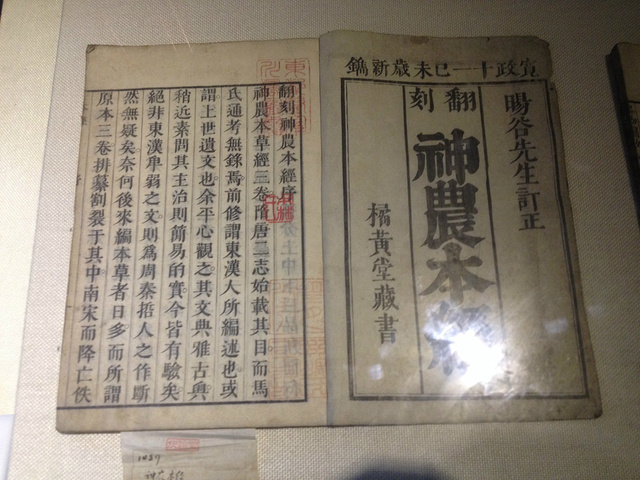 寛政十一己未歳新鐫
暘谷先生訂正
翻刻
神農本經
橘黃堂藏書
翻刻神農本經序
神農本草經三卷隋唐二志始載其目而馬
氏通考無錄焉前修謂東漢人所編述也或
謂上世遺文也余平心觀之其文典雅古奧
稍近素問其主治則簡易的實今皆有驗矣
絕非東漢卑弱之文則爲周秦哲人之作斷
然無疑矣奈何後來編本草者日多而所謂
原本三卷排纂割裂于其中南宋而降亡佚